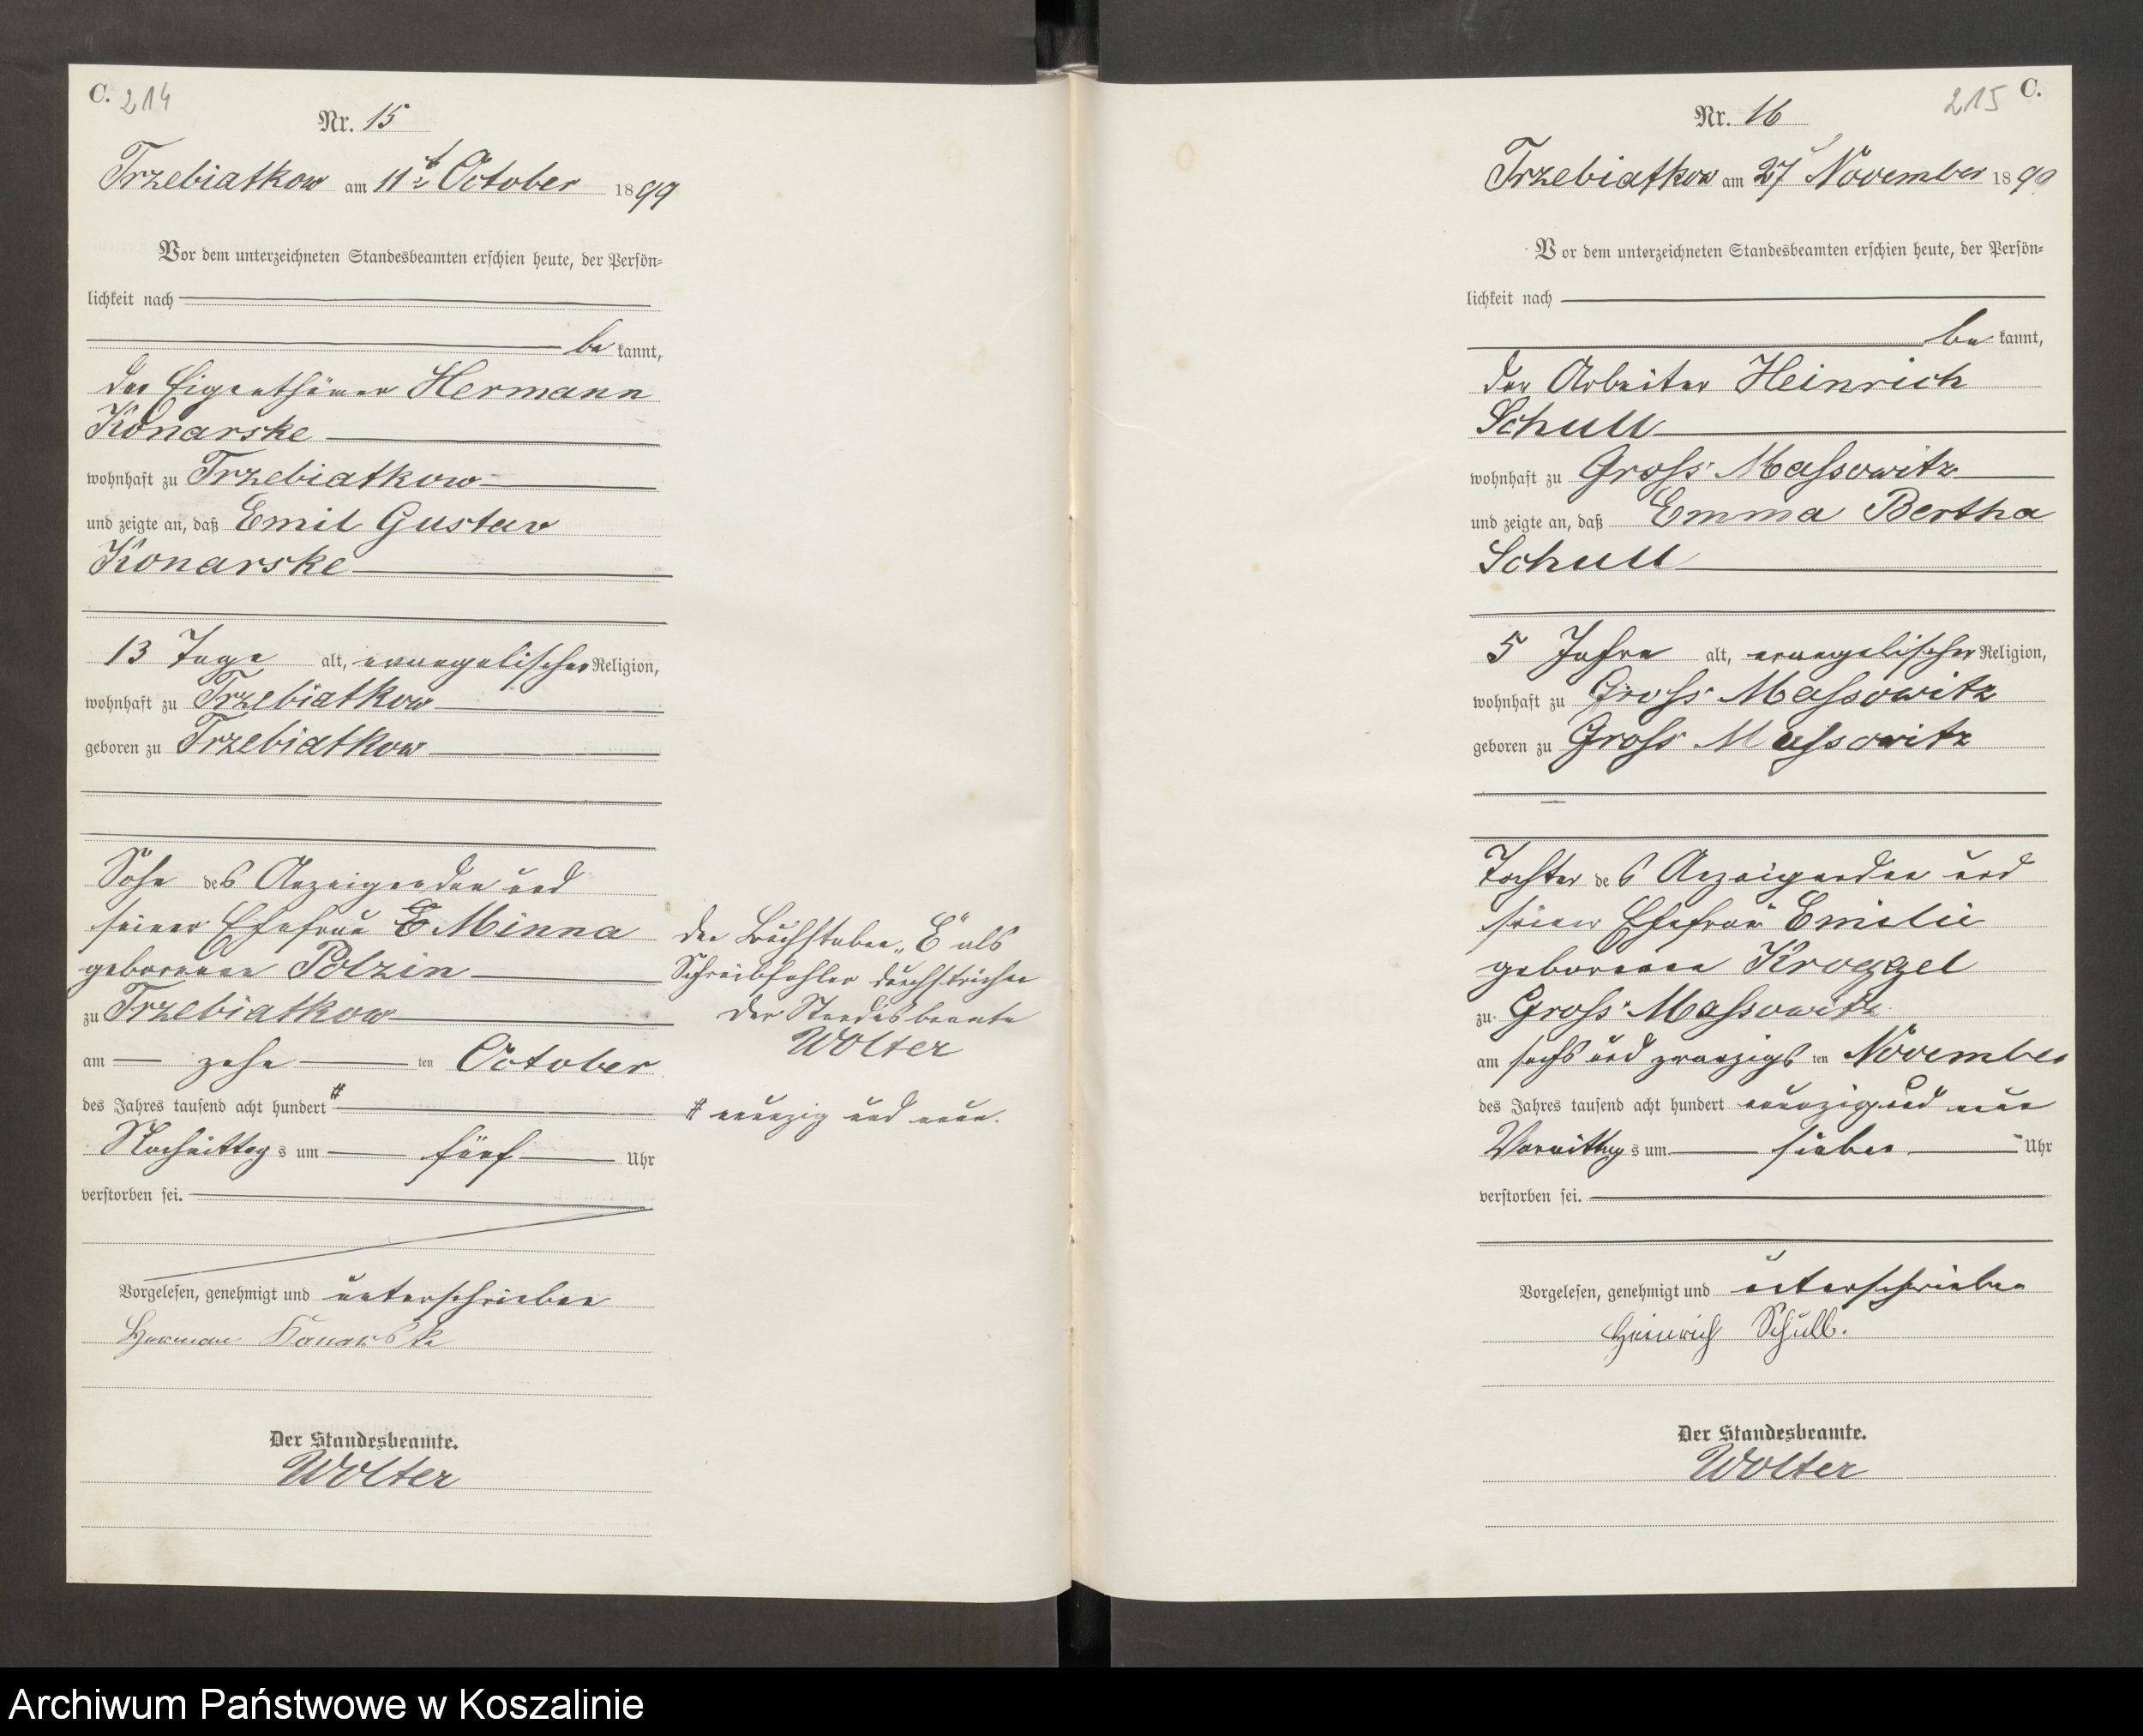 C. 214
Nr. 15
Trzebiatkow am 11t October 1899
Vor dem unterzeichneten Standesbeamten erschien heute, der Persön-
lichkeit nach
be kannt,
der Eigenthümer Hermann
Konarske
wohnhaft zu Trzebiatkow
und zeigte an, daß Emil Gustav
Konarske
13 Tage alt, evangelischer Religion,
wohnhaft zu Trzebiatkow
geboren zu Trzebiatkow
Sohn des Anzeigenden und
seiner Ehefrau E Minna
geborenen Polzin
zu Trzebiatkow
am zehn ten October
des Jahres tausend acht hundert #
Nachmittags um fünf Uhr
verstorben sei.
Vorgelesen, genehmigt und unterschrieben
Herman Konarske
Der Standesbeamte.
Wolter
Den Buchstaben „E" als
Schreibfehler durchstrichen
Der Standesbeamte
Wolter
# neunzig und neun.
215 C.
Nr. 16
Trzebiatkow am 27 November 1899
Vor dem unterzeichneten Standesbeamten erschien heute, der Persön-
lichkeit nach
be kannt,
der Arbeiter Heinrich
Schull
wohnhaft zu Gross Massowitz
und zeigte an, daß Emma Bertha
Schull
5 Jahre alt, evangelischer Religion,
wohnhaft zu Gross Massowitz
geboren zu Gross Massowitz
Tochter des Anzeigenden und
seiner Ehefrau Emilie
geborenen Kroggel
zu Gross Massowitz
am sechs und zwanzigs ten November
des Jahres tausend acht hundert neunzig und neun
Vormittags um sieben Uhr
verstorben sei.
Vorgelesen, genehmigt und unterschrieben
Heinrich Schull.
Der Standesbeamte.
Wolter
Archiwum Państwowe w Koszalinie